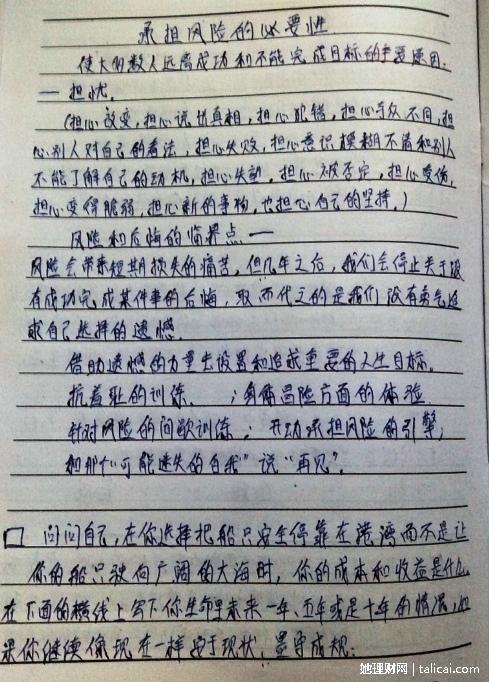 承担风险的必要性
使大多数人远离成功和不能完成目标的主要原因.
— 担忧.
(担心改变,担心说出真相,担心犯错,担心与众不同,担
心别人对自己的看法,担心失败,担心意识模糊不清和别人
不能了解自己的动机,担心失望,担心被否定,担心受伤,
担心变得脆弱,担心新的事物,也担心自己的坚持.)
风险和后悔的临界点 —
风险会带来短期损失的痛苦,但几年之后,我们会停止关于没
有成功完成某件事的后悔,取而代之的是我们没有勇气追
求自己选择的遗憾.
借助遗憾的力量去设置和追求重要的人生目标.
抗羞耻的训练. ;身体冒险方面的体验
针对风险的间歇训练;开动承担风险的引擎;
和那个"可能迷失的自我"说"再见".
□ 问问自己,在你选择把船只安全停靠在港湾而不是让
你的船只驶向广阔的大海时,你的成本和收益是什么.
在下面的横线上写下你生命里未来一年、五年或是十年的情况,如
果你继续像现在一样安于现状,墨守成规:
她理财网 | talicai.com